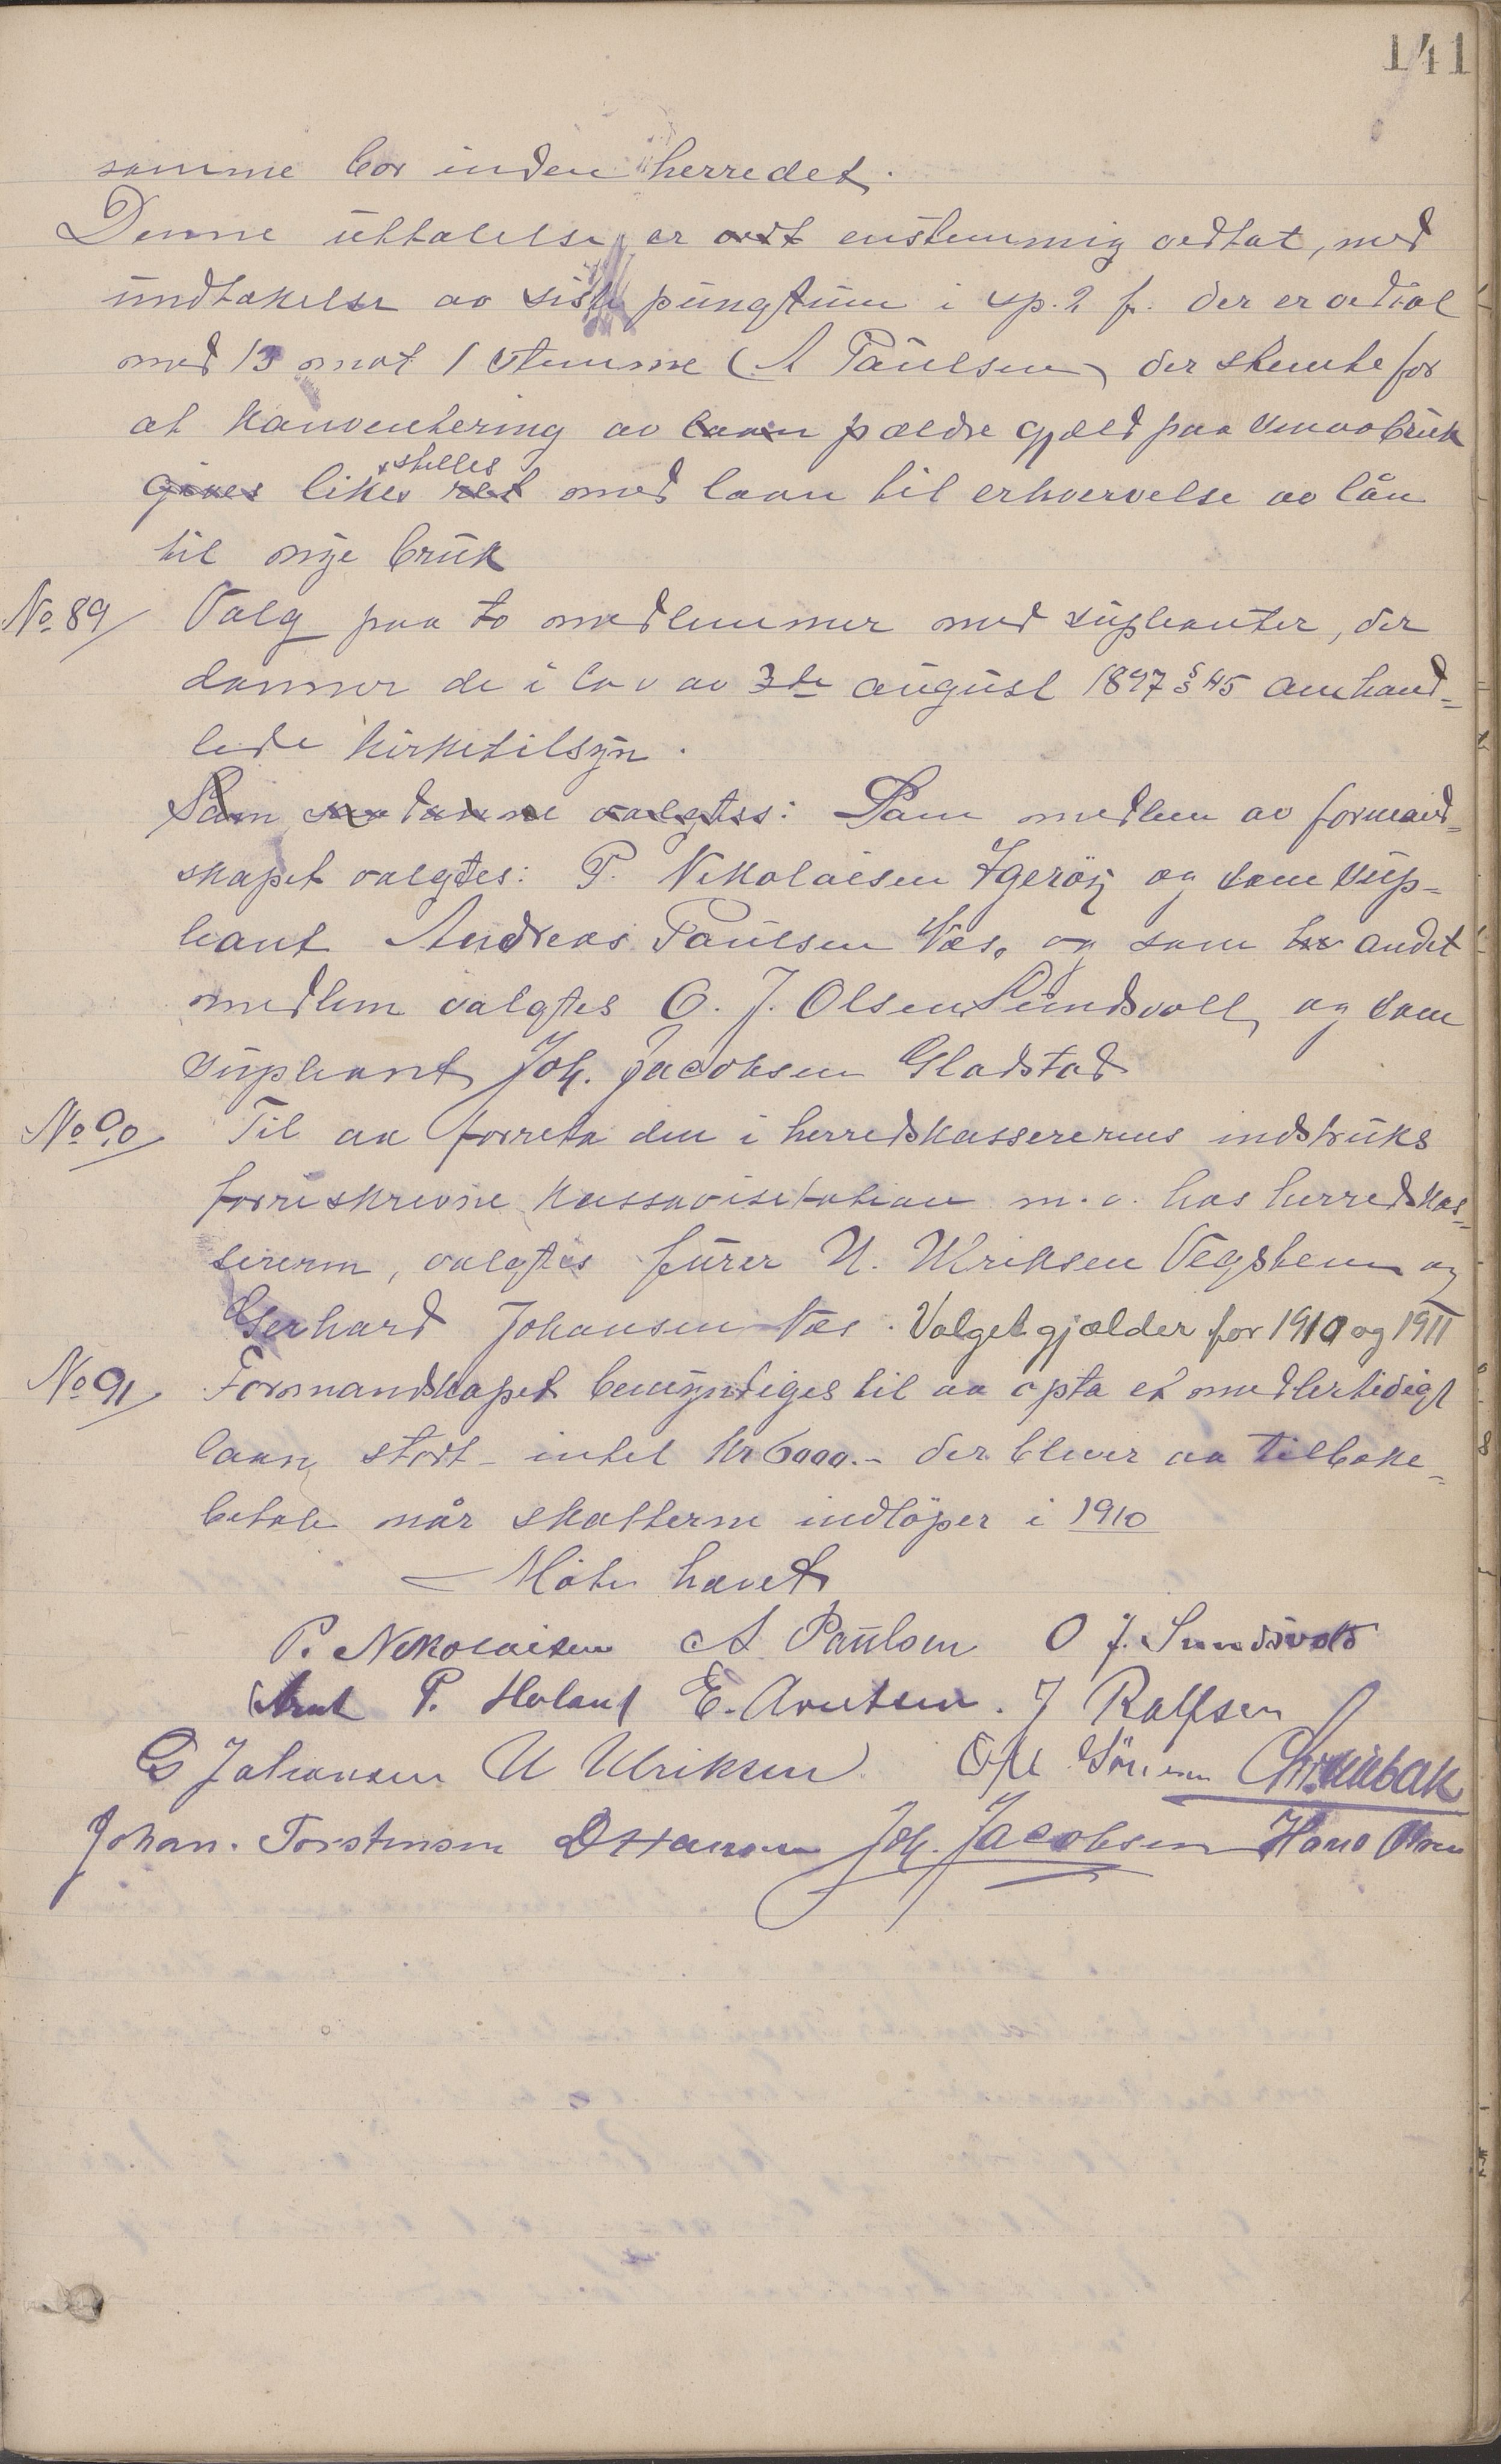 141
somme bor inden herredet.
Denne uttalelse er enstemmig vedtat, med
undtakelse av siste pungtum i sp. 2 f. der er vedtat
med 13 mot 1 stemme (A Paulsen) der stemte for
at konvertering av laan p ældre gjæld paa smaabruk
gives likes stilles ret med laan til erhvervelse av lån
til nye bruk
No 89/ Valg paa to medlemmer med supleanter, der
danner de i lov av 3de august 1897 § 45 omhand-
lede kirketilsyn.
Som valgtes: Som medlem av formand-
skapet valgtes: P. Nikolaisen Ygerøy og som sup-
leant Andreas Paulsen Væs, og som andet
medlem valgtes O. J. Olsen Sundsvoll, og som
supleant Joh. Jacobsen Gladstad
No 90 Til aa forreta den i herredskassererens indstruks
forreskrevne kassavisitation m.v. hos herredskas-
sereren, valgtes furer U. Ulriksen Vegstein og
Gerhard Johansen Væs. Valget gjælder for 1910 og 1911
No 91 Formandskapet bemyndiges til aa opta et medlertidigt
laan stort intil kr 6000.- der bliver aa tilbake-
betale når skatterne indlöper i 1910
Möte hævet
P. Nikolaisen A. Paulsen O J. Sundsvold
Arnt P. Holand E. Arntsen. J Rolfsen
G Johansen U Ulriksen
Johan. Torstensen D Hansen Joh. Jacobsen Hans Olsen